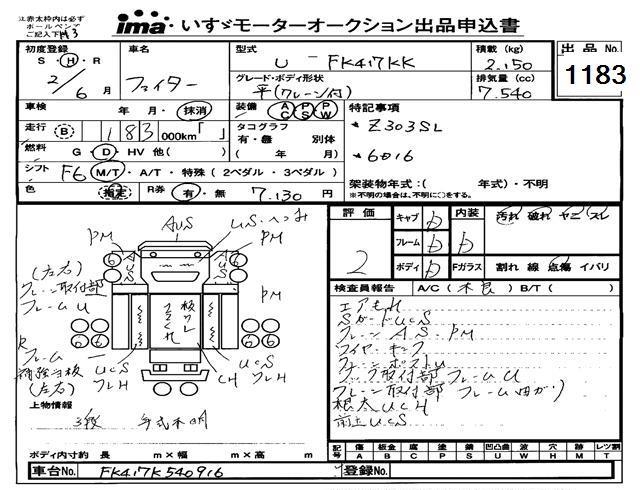 注赤太枠内は必ず
ボールペンで
ご記入下さい
ima いすゞモーターオークション出品申込書
初度登録 S・H・R 2/6月
車名 ファイター
型式 U - FK417KK
積載(kg) 2.150
出品No. 1183
グレード・ボディ形状 平(クレーン付)
排気量(cc) 7.540
車検 年・月・抹消
装備 AC PS PW
特記事項
走行 B 183 000km「 」
タコグラフ 有・無 別体
( 年 月)
・Z303SL
・6D16
燃料 G・D・HV 他( )
シフト F6 M/T・A/T・特殊(2ペダル・3ペダル)
架装物年式:( 年式)・不明
※不明の場合は、年式に○をする。
色 指定 R券 有・無 7.130 円
評価 2
キャブ D
フレーム D
ボディ D
内装 D
汚れ 破れ ヤニ スレ
Fガラス 割れ 線 点傷 イバリ
検査員報告 A/C(不良) B/T( )
AUS
US・ヘコミ
PM
PM
PM
(左右)
クレーン取付部
フレームU
R
フレーム
補強当板
(左右)
UCS
フレH
UCS
CH
エアモH
SガードUCS
クレーンAS・PM
フック取付部フレームU
クレーン取付部フレーム曲がり
根太UCH
前立UCS
上物情報
3段 年式不明
ボディ内寸約 長 m×幅 m×高 m
記号 傷A 板金B 腐C 塗P 錆S 凹凸曲U 波W 穴H 跡M レツ割T
車台No. FK417K540916
登録No.